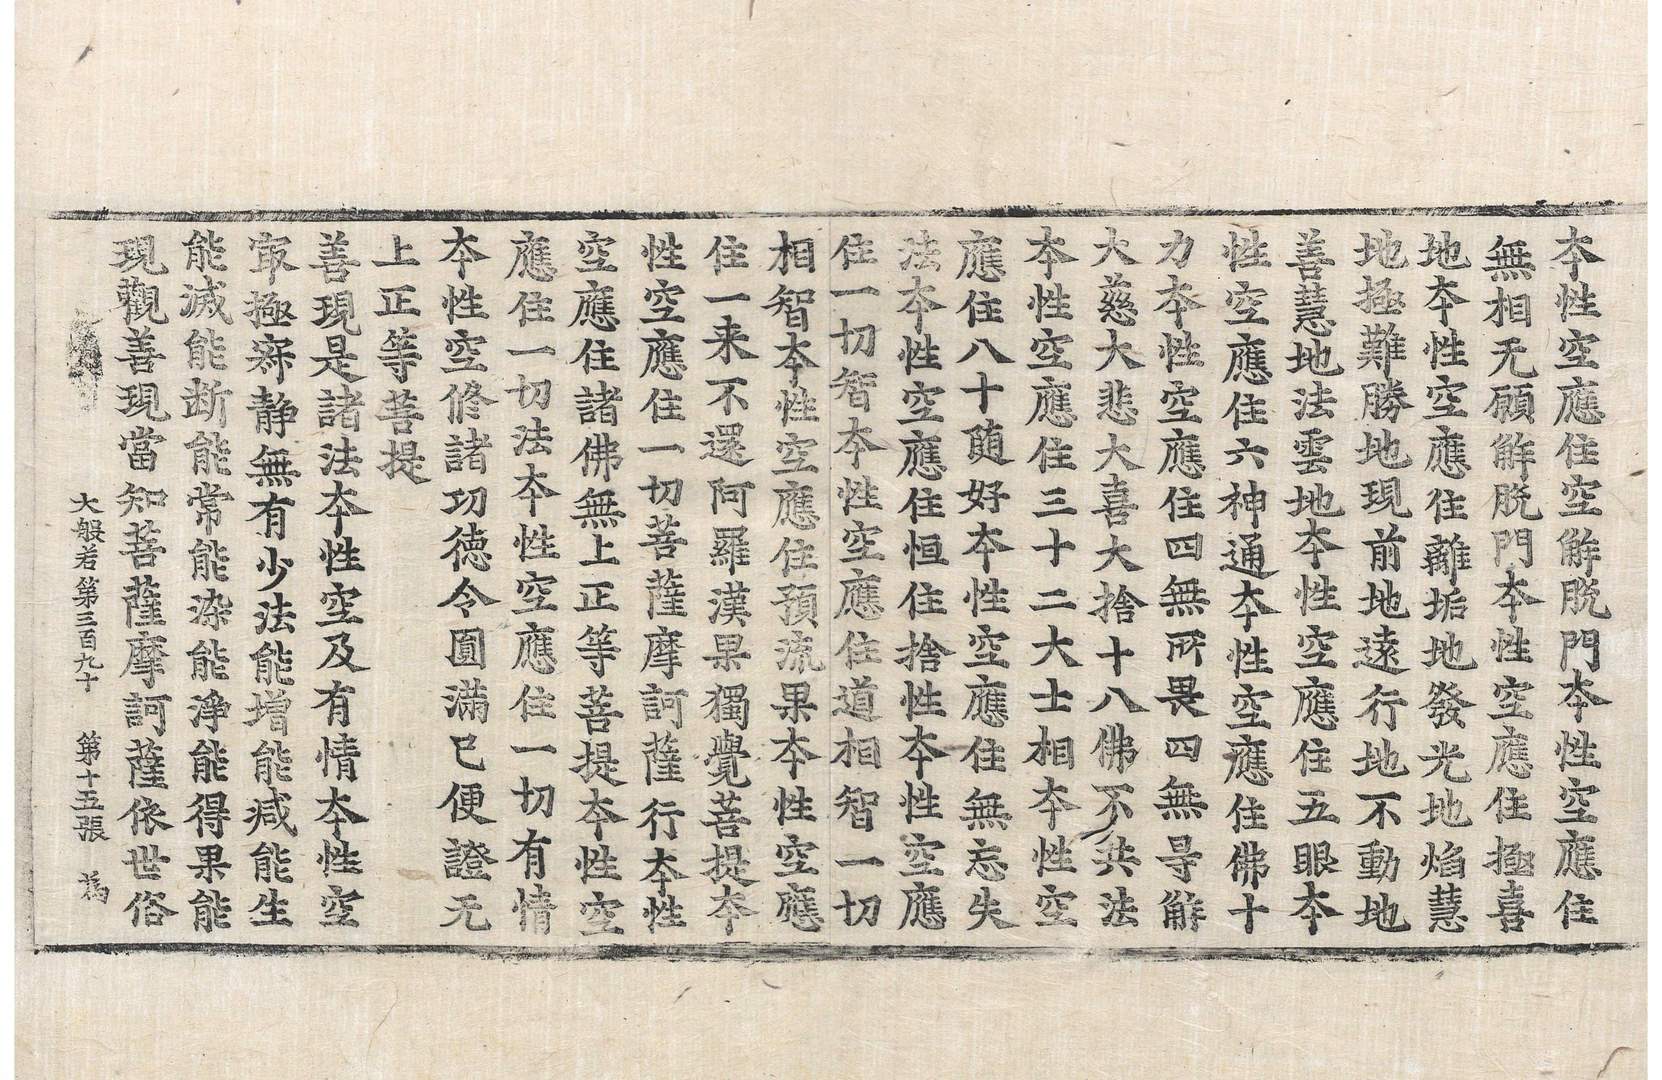 本性空應住空解脫門本性空應住
無相无願解脫門本性空應住極喜
地本性空應住離垢地發光地焰慧
地極難勝地現前地遠行地不動地
善慧地法雲地本性空應住五眼本
性空應住六神通本性空應住佛十
力本性空應住四無所畏四無导解
大慈大悲大喜大捨十八佛不共法
本性空應住三十二大士相本性空
應住八十随好本性空應住無忘失
法本性空應住恒住捨性本性空應
住一切智本性空應住道相智一切
相智本性空應住預流果本性空應
住一来不還阿羅漢果獨覺菩提本
性空應住一切菩薩摩訶薩行本性
空應住諸佛無上正等菩提本性空
應住一切法本性空應住一切有情
本性空修諸功德令圓滿已便證无
上正等菩提
善現是諸法本性空及有情本性空
㝡極寂静無有少法能增能減能生
能滅能斷能常能染能淨能得果能
現觀善現當知菩薩摩訶薩依世俗
大般若第三百九十 第十五張 為